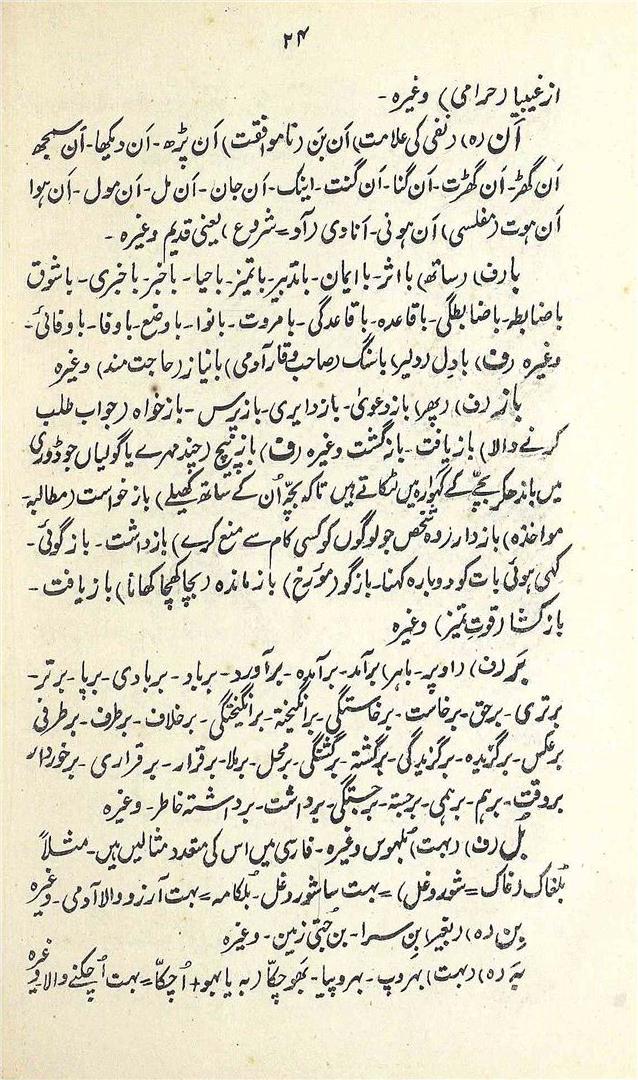 ۲۴
از غیبیا (حرامی) وغیرہ -
اَن (ہ) (نفی کی علامت) اَن بَن (ناموافقت) اَن پڑھ - اَن دیکھا - اَن سمجھ
اَن گھڑ - اَن گھڑت - اَن گنا - اَن گنت - اینک - اَن جان - اَن مل - اَن مول - اَن ہوا
اَن ہوت (مفلسی) اَن ہونی - انادی (آد = شروع) یعنی قدیم وغیرہ -
با (ف) (ساتھ) با اثر - با ایمان - باتدبیر - باتمیز - باحیا - باخبر - باخبری - باشوق
باضابطہ - باضابطگی - باقاعدہ - باقاعدگی - بامروت - بانوا - باوضع - باوفا - باوفائی -
وغیرہ (ف) بادِل (دلیر) باسنگ (صاحب وقار آدمی) بانیاز (حاجت مند) وغیرہ
باز (ف) (پھر) باز دعویٰ - باز دایری - باز پرس - باز خواہ (جواب طلب
کرنے والا) بازیافت - بازگشت وغیرہ (ف) باز پیچ (چند مہرے یا گولیاں جو ڈوری
میں باندھکر بچے کے گہوارہ میں لٹکاتے ہیں تاکہ بچہ اُن کے ساتھ کھیلے) باز خواست (مطالبہ -
مواخذہ) بازدار (وہ شخص جو لوگوں کو کسی کام سے منع کرے) بازداشت - باز گوئی -
کہی ہوئی بات کو دوبارہ کہنا - بازگو (مؤرخ) باز ماندہ (بچا کھچا کھانا) بازیافت -
باز کشا (قوتِ تمیز) وغیرہ
بَر (ف) (اوپر - باہر) برآمد - برآمدہ - برآورد - برباد - بربادی - برپا - برتر -
برتری - برحق - برخاست - برخاستگی - برانگیختہ - برانگیختگی - برخلاف - برطرف - برطرفی
برعکس - برگزیدہ - برگزیدگی - برگشتہ - برگشتگی - برمحل - برملا - برقرار - برقراری - برخوردار
بروقت - برہم - برہمی - برجستہ - برجستگی - برداشت - برداشتہ خاطر - وغیرہ
بُل (ف) (بہت) بُلہوس وغیرہ - فارسی میں اس کی متعدد مثالیں ہیں - مثلاً
بُلغاک (غاک = شوروغل) = بہت سا شوروغل - بُلکامہ = بہت آرزو والا آدمی - وغیرہ
بِن (ہ) (بغیر) بِن سرا - بن جُتی زمین - وغیرہ
بَہ (ہ) (بہت) بہروپ - بہروپیا - بَھوچکّا (بہ یا بہو + اُچکّا = بہت اُچکنے والا) وغیرہ